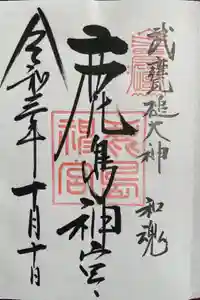 武甕槌大神 和魂
鹿島神宮
令和三年 十月十日
鹿島
神宮